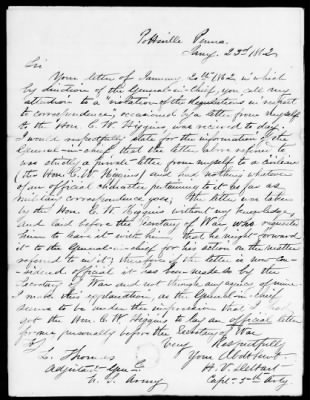 Pottsville Penna.
Jany. 23rd 1862
Sir
Your letter of January 20th 1862 in which
by direction of the General-in-Chief, you call my
attention to a "violation of the Regulations in respect
to correspondence, occasioned by a letter from myself
to the Hon. C. W. Higgins was received to day.
I would respectfully state for the information of the
General-in-chief that the letter above refered to
was strictly a private letter from myself to a Civilian
(the Hon. C. W. Higgins) and had nothing whatever
of an official character pertaining to it so far as
military correspondence goes; the letter was taken
by the Hon. C. W. Higgins without my knowledge,
and laid before the Secretary of War who requested
him to leave it with him that he might forward
it to the General-in-chief for his action on the matter
referred to in it; therefore if the letter is now con-
sidered official it has been made so by the
Secretary of War and not through any agency of mine
I make this explanation as the General-in-chief
seems to be under the impression that I had
got the Hon. C. W. Higgins to lay an official letter
for me personally before the Secretary of War
Very Respectfully
To
L. Thomas Your Obdt Servt
Adjutant Gen. H. V. DeHart
U. S. Army Capt. 5th Arty.